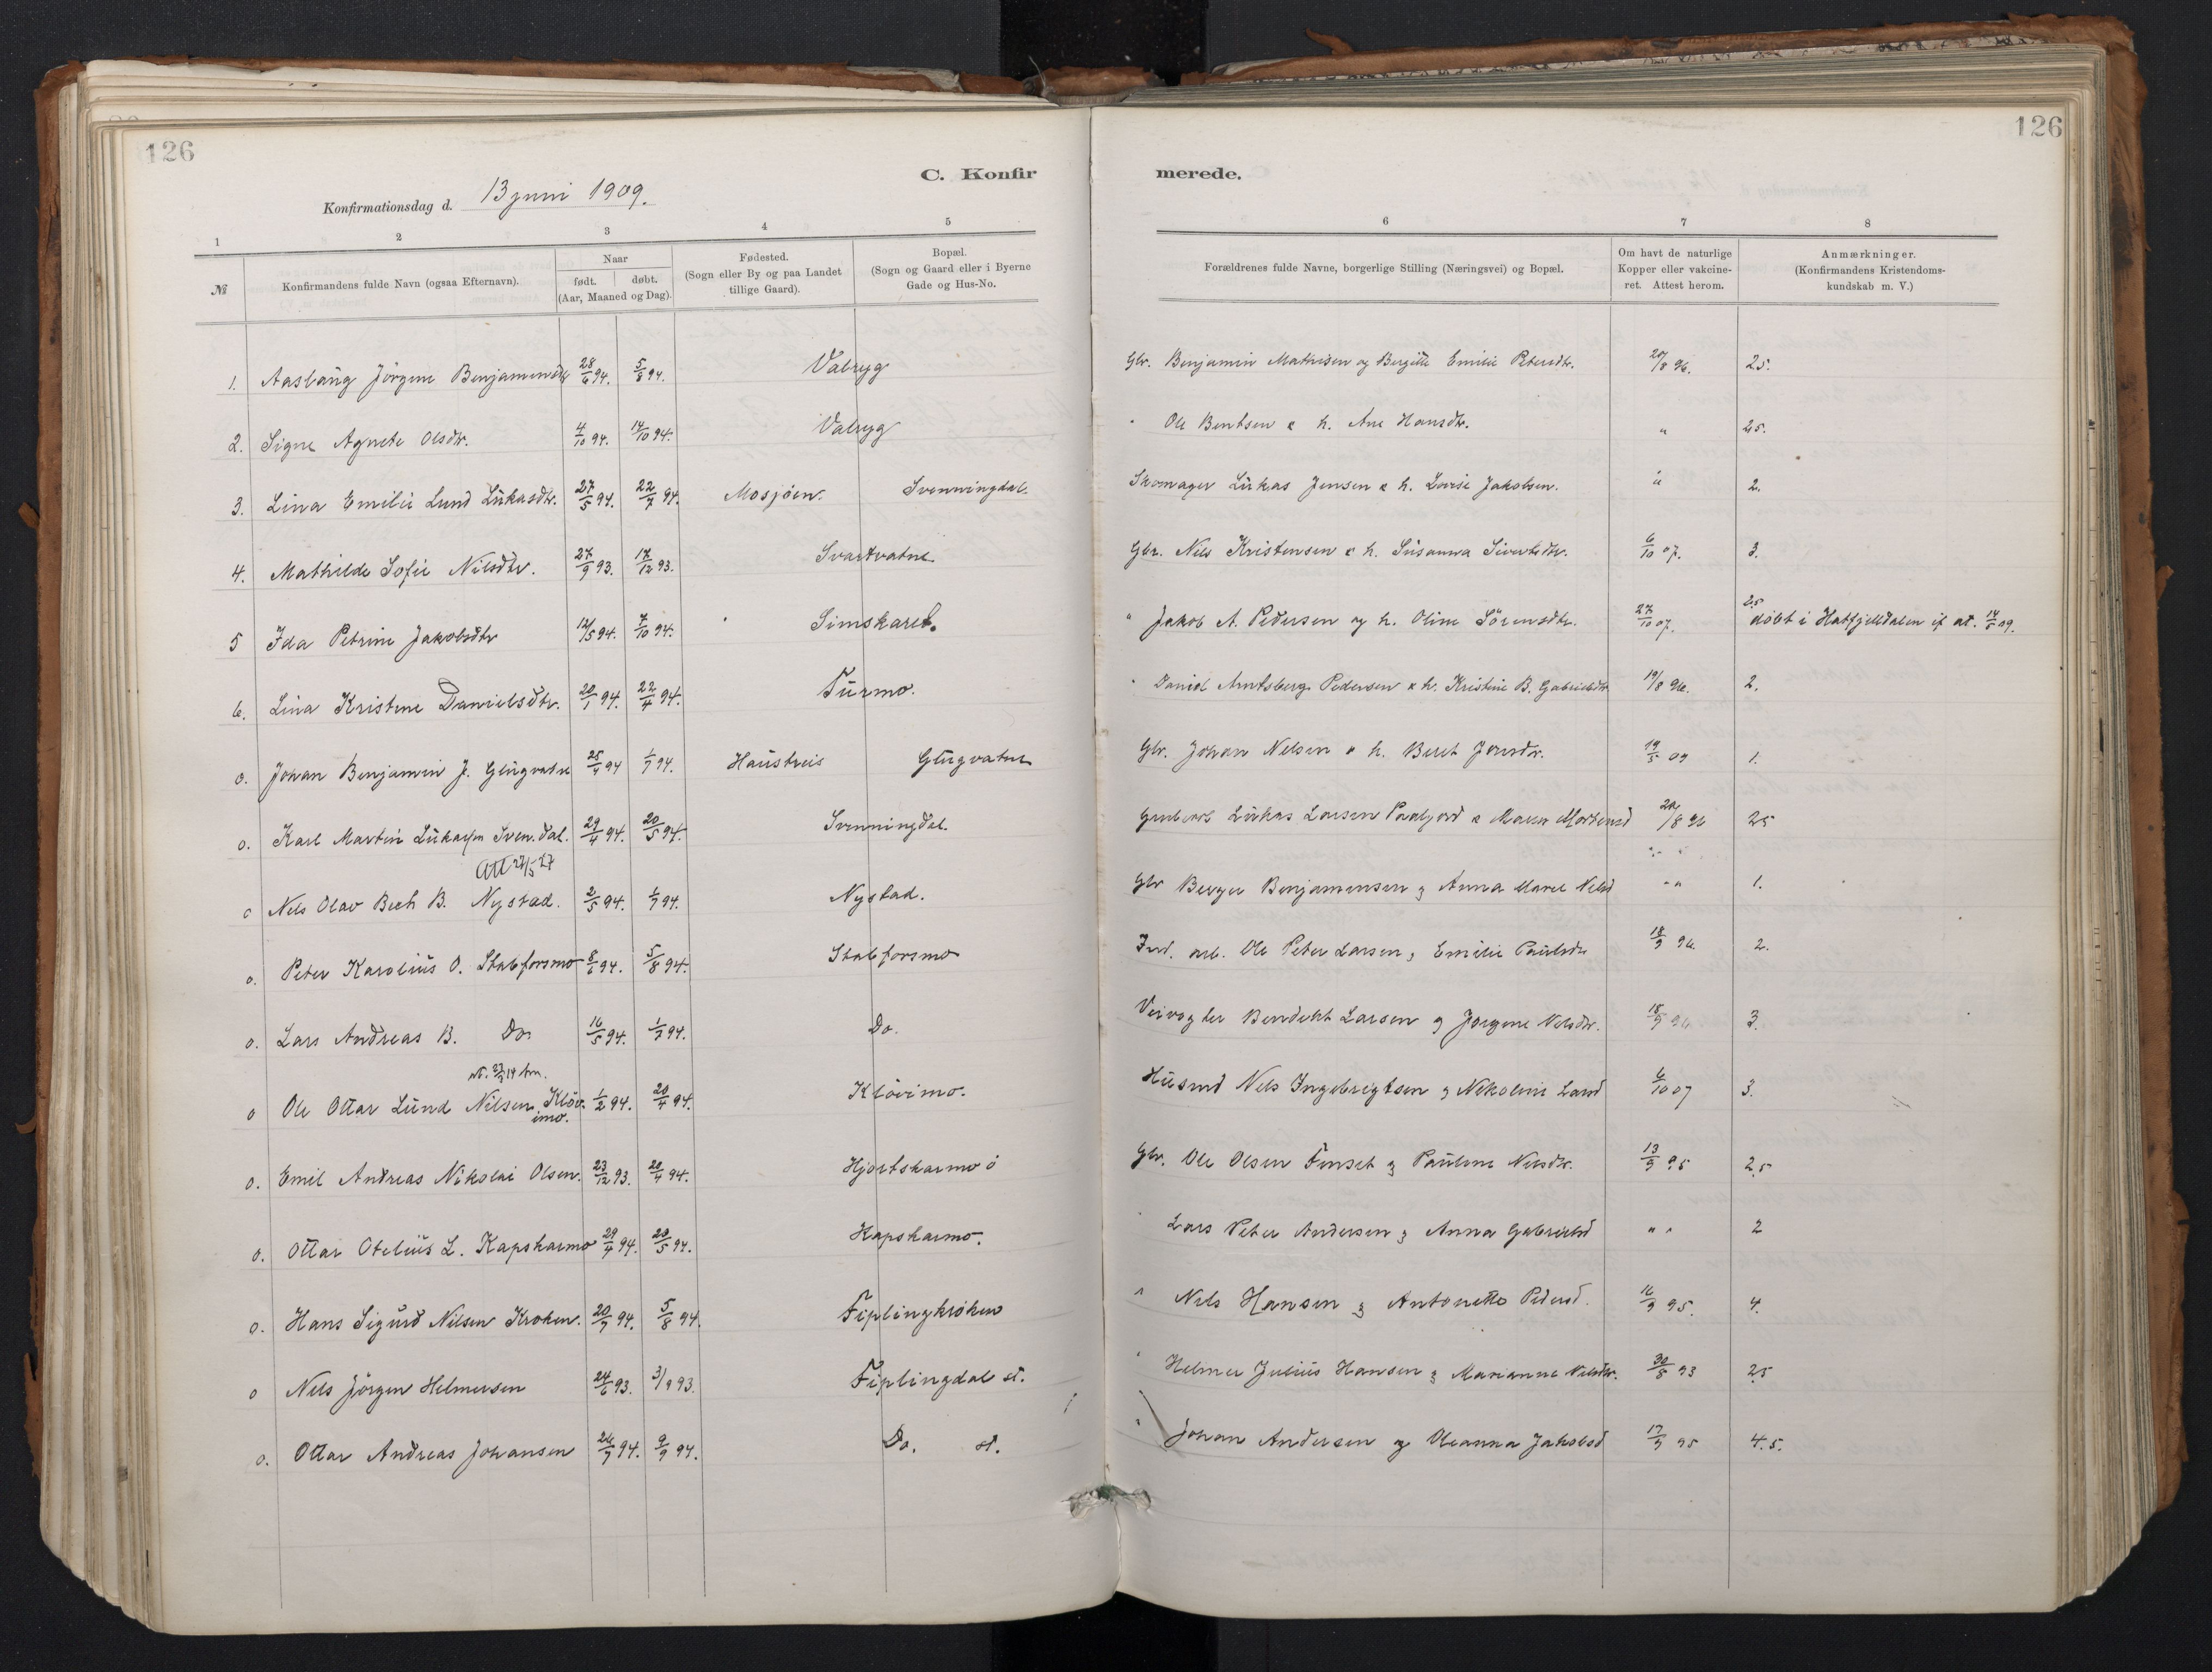 126
126
C. Konfir
merede.
Konfirmationsdag d. 13 juni 1909.
1 2 3 4 5 6 7 8
№
Konfirmandens fulde Navn (ogsaa Efternavn).
Naar
født. døbt.
(Aar, Maaned og Dag).
Fødested.
(Sogn eller By og paa Landet
tillige Gaard).
Bopæl.
(Sogn og Gaard eller i Byerne
Gade og Hus-No.
Forældrenes fulde Navne, borgerlige Stilling (Næringsvei) og Bopæl.
Om havt de naturlige
Kopper eller vakcine-
ret. Attest herom.
Anmærkninger.
(Konfirmandens Kristendoms-
kundskab m. V.)
1. Aaslaug Jörgine Benjaminsdtr 28/6 94. 5/8 94. Valryg Gbr. Benjamin Mathisen og Bergitte Emilie Petersdtr. 20/8 96. 2.5.
2. Signe Agnete Olsdtr. 4/10 94. 14/10 94. Valryg " Ole Bentsen & h. Ane Hansdtr. " 2.5.
3. Lina Emilie Lund Lukasdtr. 27/5 94. 22/7 94. Mosjöen. Svenningdal. Skomager Lukas Jensen & h. Lovise Jakobsen. " 2.
4. Mathilde Sofie Nilsdtr. 27/9 93. 17/12 93. Svartvatne Gbr. Nils Kristensen & h. Susanna Sivertsdtr. 6/10 07. 3.
5 Ida Petrine Jakobsdtr 12/5 94. 7/10 94. Simskaret. " Jakob A. Pedersen og h. Oline Sörensdtr. 27/10 07. 2.5 döbt i Hatfjelldalen if at. 14/5 09.
6. Lina Kristine Danielsdtr. 20/1 94. 22/4 94. Turmo. " Daniel Arntsberg Pedersen & h. Kristine B. Gabrielsdtr 19/8 96. 2.
o. Johan Benjamin J. Glugvatne 25/4 94 1/7 94. Haustreis Glugvatne Gbr. Johan Nilsen & h. Beret Jonsdtr. 19/5 09 1.
o. Karl Martin Lukassen Sven.dal. 29/4 94. 20/5 94. Svenningdal. Lukas Larsen 20/8 96 2.5
Att 27/5 27
o Nils Olav Bech B. Nystad. 2/5 94. 1/7 94. Nystad. Gbr Berger Benjaminsen & Anna Marie Nilsd " " 1.
o. Peter Karolius O. Stabforsmo 8/6 94. 5/8 94. Stabforsmo Ind. arb. Ole Peter Larsen & Emilie Paulsdtr 18/9 96. 2.
o. Lars Andreas B. Do 16/5 94. 1/7 94. Do. Veivogter Bendikt Larsen & Jörgine Nilsdtr. 18/9 96 3.
o Ole Ottar Lund Nilsen Klöv-
imo. 1/2 94. 20/4 94. Klövimo. Husmd Nils Ingebrigtsen & Nikoline Larsd 6/10 07 3.
o. Emil Andreas Nikolai Olsen. 23/12 93. 20/4 94. Hjortskarmo Gbr. Ole Olsen Finset & Pauline Nilsdtr. 13/9 95 2.5
o. Ottar Otelius L. Kapskarmo 29/4 94. 20/5 94. Kapskarmo. " Lars Peter Andersen & Anna Gabrielsd " " 2
o. Hans Sigurd Nilsen Kroken. 20/7 94. 5/8 94. Fiplingkroken " Nils Hansen & Antonette Pedersd. 16/9 95. 4.
o Nils Jörgen Helmersen 24/6 93. 3/9 93. Fiplingdal st. " Helmer Julius Hansen & Marianne Nilsdtr. 30/8 93 2.5
o. Ottar Andreas Johansen 26/7 94. 9/9 94. Do. st. " Johan Andersen og Oleanna Jakobsd 17/9 95 4.5.